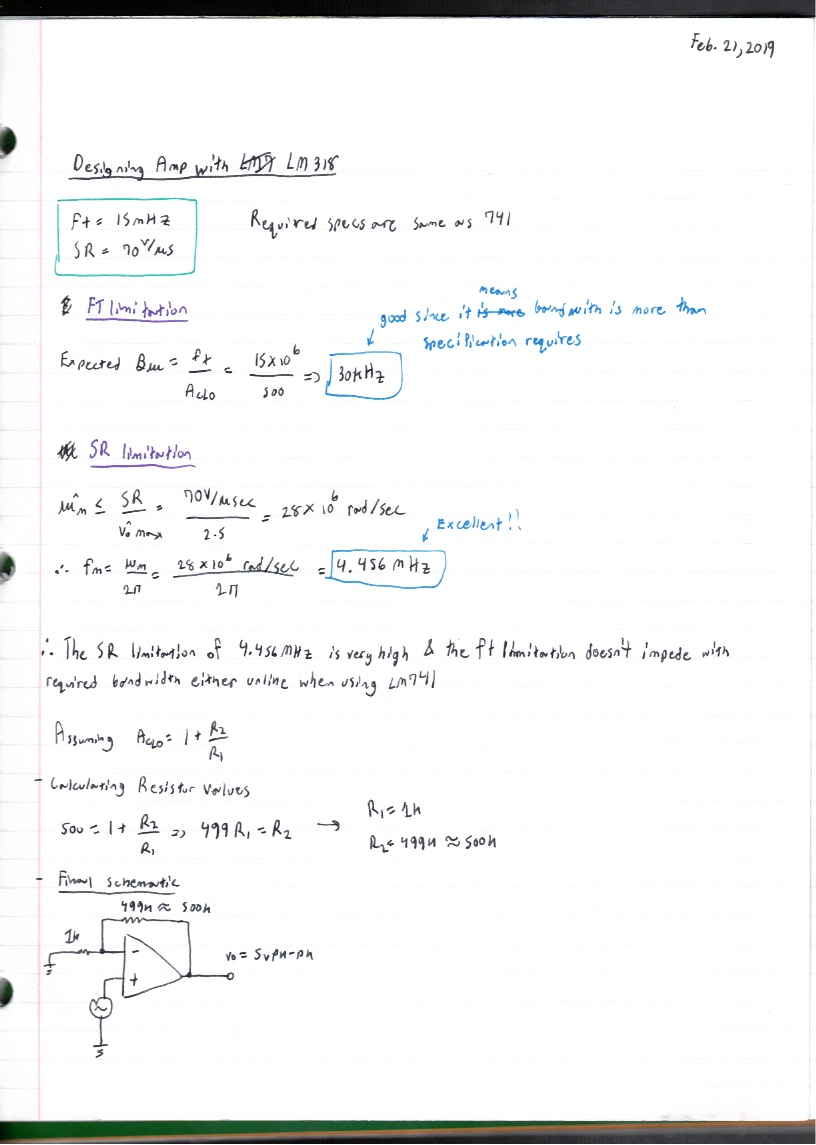 Feb. 21, 2019
Designing Amp with LM318
Ft = 15MHz
SR = 70 V/µs
Required specs are same as 741
FT limitation
means
good since it is more bandwith is more than
specification requires
Expected Bw = ft/Aclo = 15x10^6/500 => 30kHz
SR limitation
ŵm ≤ SR/v̂o max = 70V/µsec/2.5 = 28x10^6 rad/sec
Excellent!!
∴ fm = wm/2π = 28x10^6 rad/sec/2π = 4.456 MHz
∴ The SR limitation of 4.456MHz is very high & the ft limitation doesn't impede with
required bandwidth either unline when using LM741
Assuming Aclo = 1 + R2/R1
- Calculating Resistor Values
500 = 1 + R2/R1 => 499R1 = R2 →
R1 = 1k
R2 = 499k ≈ 500k
- Final schematic
499k ≈ 500k
1k
-
+
vo = 5vpk-pk